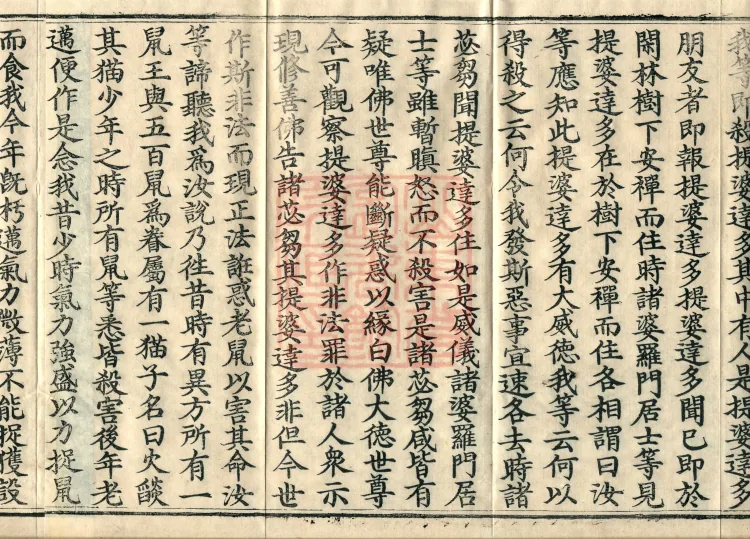 我等即殺提婆達多其中有人是提婆達多
朋友者即報提婆達多提婆達多聞已即於
閑林樹下安禪而住時諸婆羅門居士等見
提婆達多在於樹下安禪而住各相謂曰汝
等應知此提婆達多有大威德我等云何以
得殺之云何令我發斯惡事宜速各去時諸
苾芻聞提婆達多住如是威儀諸婆羅門居
士等雖暫瞋怒而不殺害是諸苾芻咸皆有
疑唯佛世尊能斷疑惑以緣白佛大德世尊
今可觀察提婆達多作非法罪於諸人衆示
現修善佛告諸苾芻其提婆達多非但今世
作斯非法而現正法誑惑老鼠以害其命汝
等諦聽我爲汝說乃徃昔時有異方所有一
鼠王與五百鼠爲眷屬有一猫子名曰火燄
其猫少年之時所有鼠等悉皆殺害後年老
邁便作是念我昔少時氣力強盛以力捉鼠
而食我今年旣朽邁氣力微薄不能捉獲設